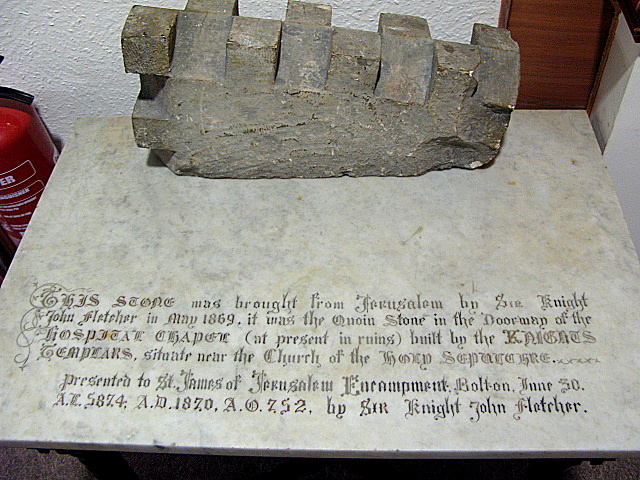 THIS STONE was brought from Jerusalem by SIR Knight
John Fletcher in May 1869, it was the Quoin Stone in the Doorway of the
HOSPITAL CHAPEL (at present in ruins) built by the KNIGHTS
TEMPLARS, situate near the Church of the HOLY SEPULCHRE.
presented to St. James of Jerusalem Encampment, Bolton, June 30.
A.L. 5874, A.D. 1870, A.O. 752, by SIR Knight John Fletcher.